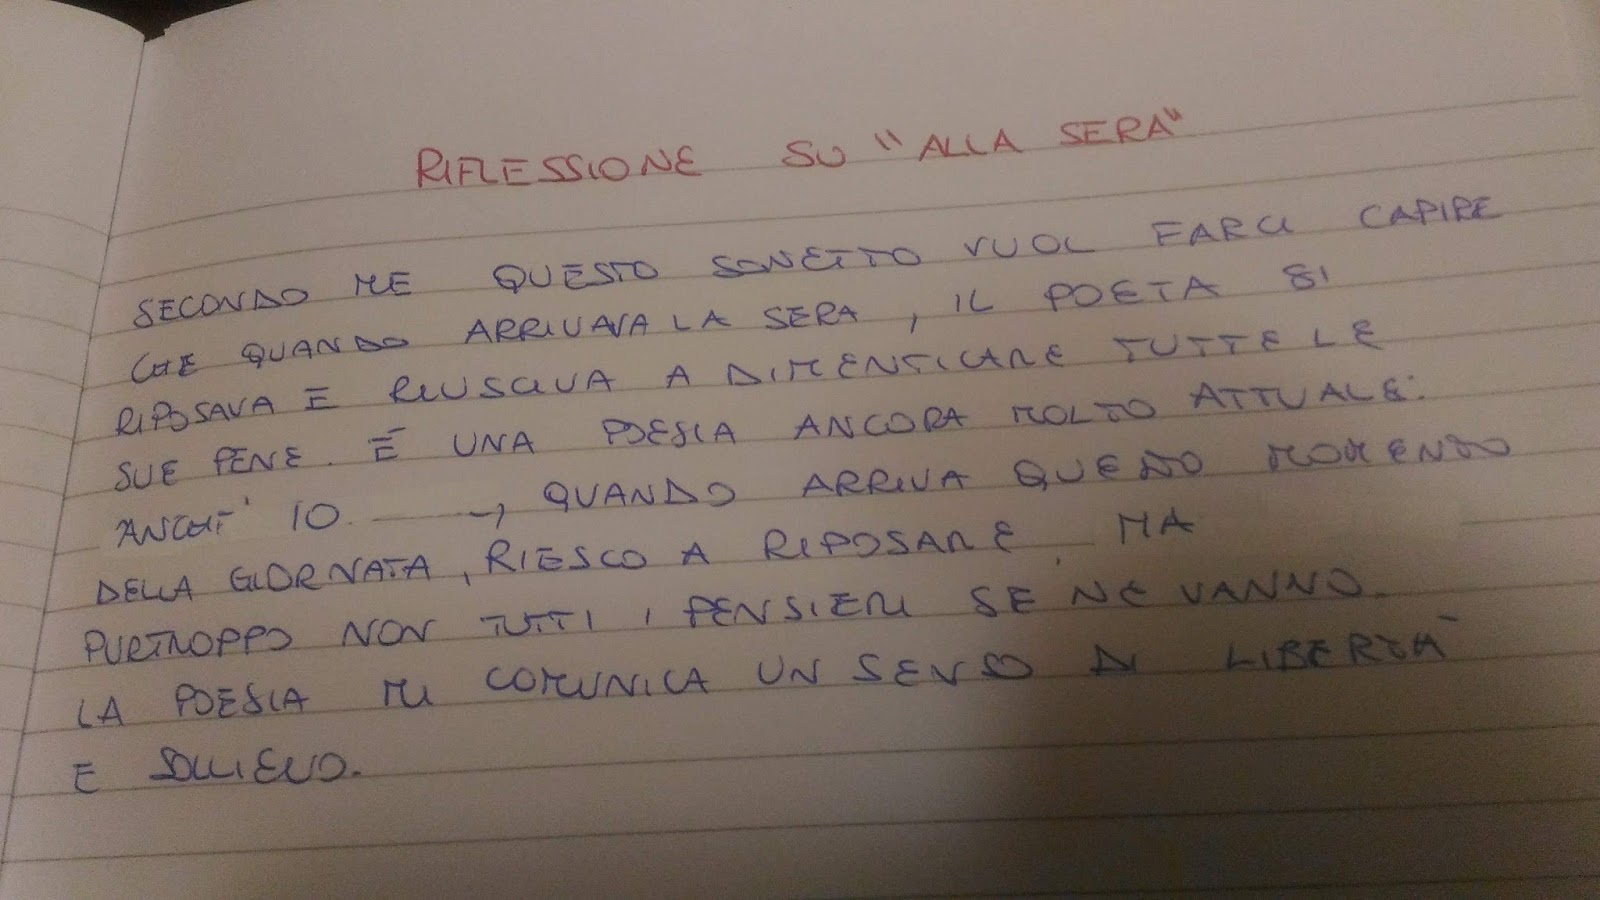 RIFLESSIONE SU "ALLA SERA"
SECONDO ME QUESTO SONETTO VUOL FARCI CAPIRE
CHE QUANDO ARRIVAVA LA SERA, IL POETA SI
RIPOSAVA E RIUSCIVA A DIMENTICARE TUTTE LE
SUE PENE. È UNA POESIA ANCORA MOLTO ATTUALE:
ANCH' IO, QUANDO ARRIVA QUESTO MOMENTO
DELLA GIORNATA, RIESCO A RIPOSARE, MA
PURTROPPO NON TUTTI I PENSIERI SE NE VANNO.
LA POESIA MI COMUNICA UN SENSO DI LIBERTÀ
E SOLLIEVO.